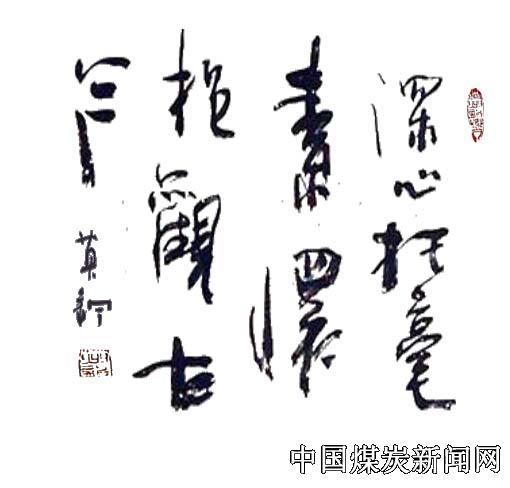 深心托毫
素懷
抱觀古
今
中国煤炭新闻网